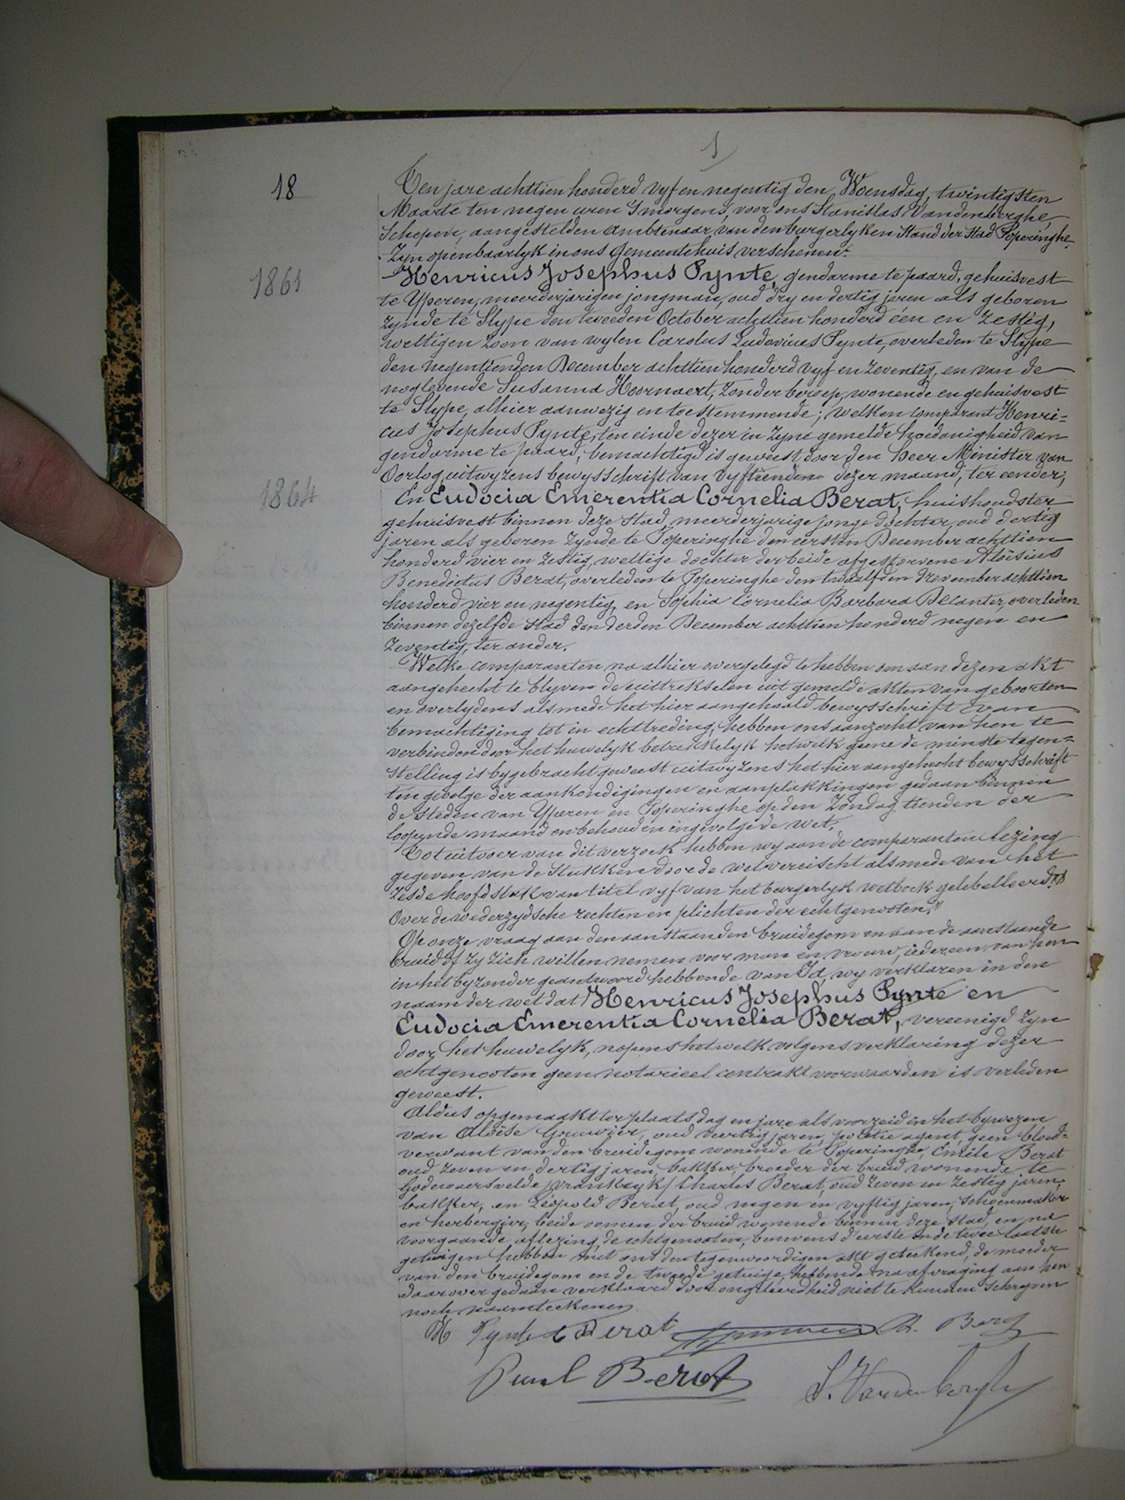 1
18
Ten jare achttien honderd vyf en negentig den Woensdag, twintigsten
Maarte ten negen uren 's morgens, voor ons Stanislas Vandenberghe,
Schepen, aangestelden ambtenaar van den burgerlyken Stand der Stad Poperinghe
zyn openbaarlyk in ons gemeentehuis verschenen:
1861
Henricus Josephus Pynte, gendarme te paard, gehuisvest
te Yperen, meerderjarigen jongman, oud dry en dertig jaren als geboren
zynde te Slype den tweeden October achttien honderd één en zestig,
wettigen zoon van wylen Carolus Ludovicus Pynte, overleden te Slype
den negentienden December achttien honderd vyf en zeventig, en van de
noglevende Susanna Hoornaert, zonder beroep, wonende en gehuisvest
te Slype, alhier aanwezig en toestemmende; welken comparant Henri=
cus Josephus Pynte, ten einde dezer in zyne gemelde hoedanigheid van
gendarme te paard, bemachtigd is geweest door den heer Minister van
Oorlog uitwyzens bewysschrift van vyftienden dezer maand, ter eender;
1864
En Eudocia Emerentia Cornelia Berat, huishoudster
gehuisvest binnen deze stad, meerderjarige jonge dochter, oud dertig
jaren als geboren zynde te Poperinghe den eersten December achttien
honderd vier en zestig, wettige dochter der beide afgestorvene Aloïsius
Benedictus Berat, overleden te Poperinghe den twaelfden November achttien
honderd vier en negentig, en Sophia Cornelia Barbara Decanter, overleden
binnen dezelfde stad den derden December achttien honderd negen en
zeventig, ter ander.
Welke comparanten na alhier overgelegd te hebben om aan dezen akt
aangehecht te blyven de uittrekselen uit gemelde akten van geboorten
en overlydens alsmede het hier aangehaald bewysschrift van
bemachtiging tot in echttreding, hebben ons aanzocht van hen te
verbinden door het huwelyk betrekkelyk hetwelk geene de minste tegen=
stelling is bygebracht geweest uitwyzens het hier aangehecht bewysschrift
ten gevolge der aankondigingen en aanplakkingen gedaan binnen
de steden van Yperen en Poperinghe op den Zondag tienden der
loopende maand en behouden ingevolge de wet.
Tot uitvoer van dit verzoek hebben wy aan de comparanten lezing
gegeven van de stukken door de wet vereischt alsmede van het
zesde hoofdstuk van titel vyf van het burgerlyk wetboek gelebelleerd
Over de wederzydsche rechten en plichten der echtgenooten."
Op onze vraag aan den aanstaanden bruidegom en aan de aanstaande
bruid of zy zich willen nemen voor man en vrouw, iedereen van hen
in het byzonder geantwoord hebbende van Ja, wy verklaren in den
naam der wet dat Henricus Josephus Pynte en
Eudocia Emerentia Cornelia Berat, vereenigd zyn
door het huwelyk, nopens hetwelk volgens verklaring dezer
echtgenooten geen notarieel contrakt voorwaarden is verleden
geweest.
Aldus opgemaakt ter plaats dag en jare als voorzeid in het bywezen
van Aloïse oud veertig jaren, policie agent, geen bloed=
verwant van den bruidegom wonende te Poperinghe, Emile Berat
oud zeven en dertig jaren, bakker, broeder der bruid wonende te
Godewaersvelde (Frankryk) Charles Berat, oud zeven en zestig jaren,
bakker, en Léopold Berat, oud negen en vyftig jaren, schoenmaker
en herbergier, beide oomen der bruid wonende binnen deze stad, en na
voorgaande aflezing, de echtgenooten, benevens d'eerste en de twee laatste
getuigen hebben met ons den tegenwoordigen akt geteekend, de moeder
van den bruidegom en de tweede getuige, hebbende na afvraging aan hen
daarover gedaan verklaard door ongeleerdheid niet te kunnen schryven
noch naamteekenen
H Pynte E Berat Ch. Berat
Berat S. Vandenberghe